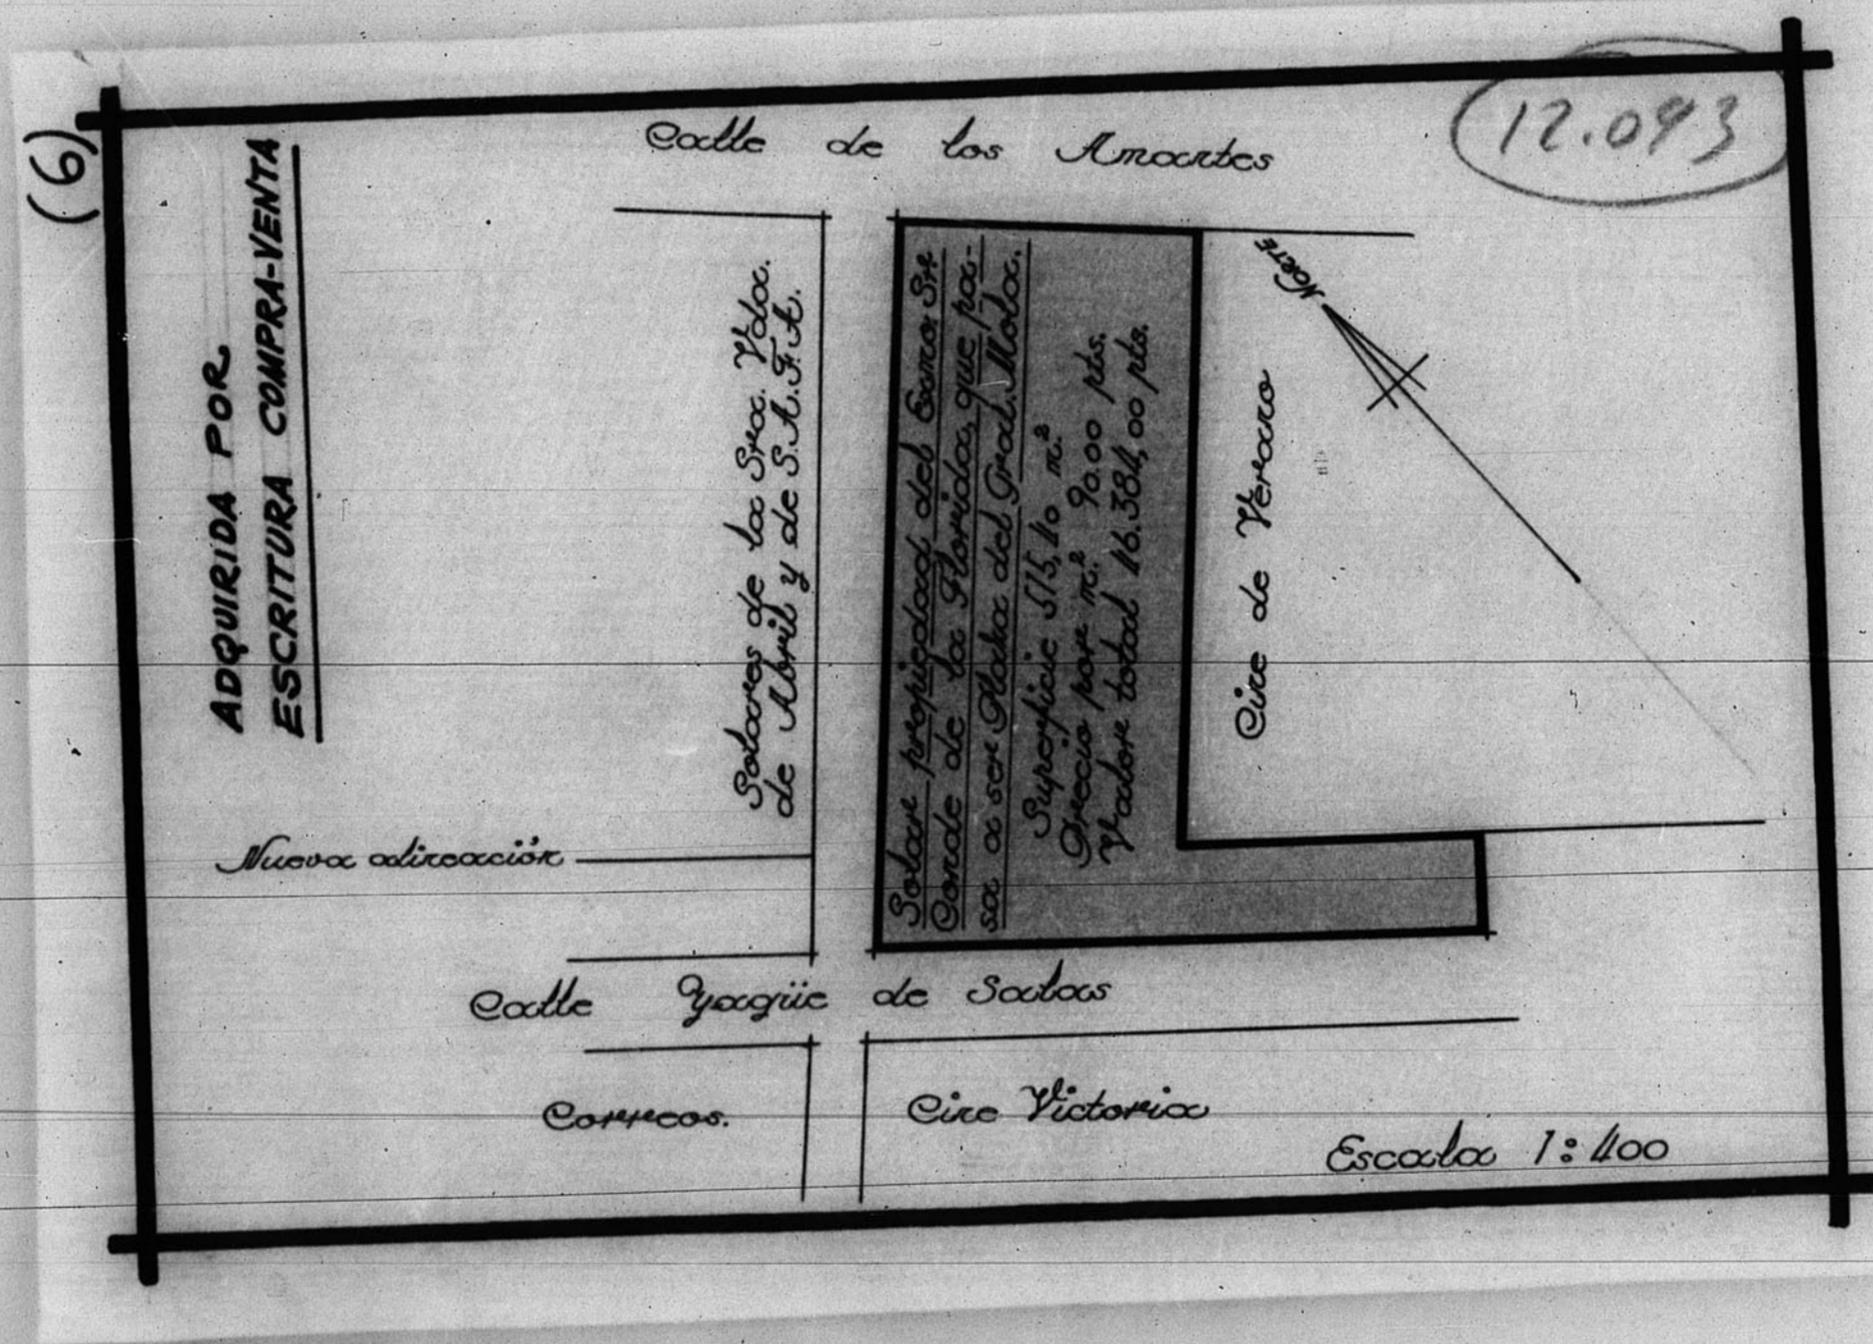 (6)
12.093
ADQUIRIDA POR
ESCRITURA COMPRA-VENTA
Calle de los Amantes
Solares de la Sra. Vda.
de Abril y de S.A.F.A.
Solar propiedad del Excmo. Sr.
Conde de la Florida, que pa-
sa a ser Plaza del Gral. Mola.
Superficie 515,40 m.²
Precio por m.² 90.00 pts.
Valor total 46.384,00 pts.
Cine de Verano
NORTE
Nueva alineación
Calle Yagüe de Salas
Correos.
Cine Victoria
Escala 1:400